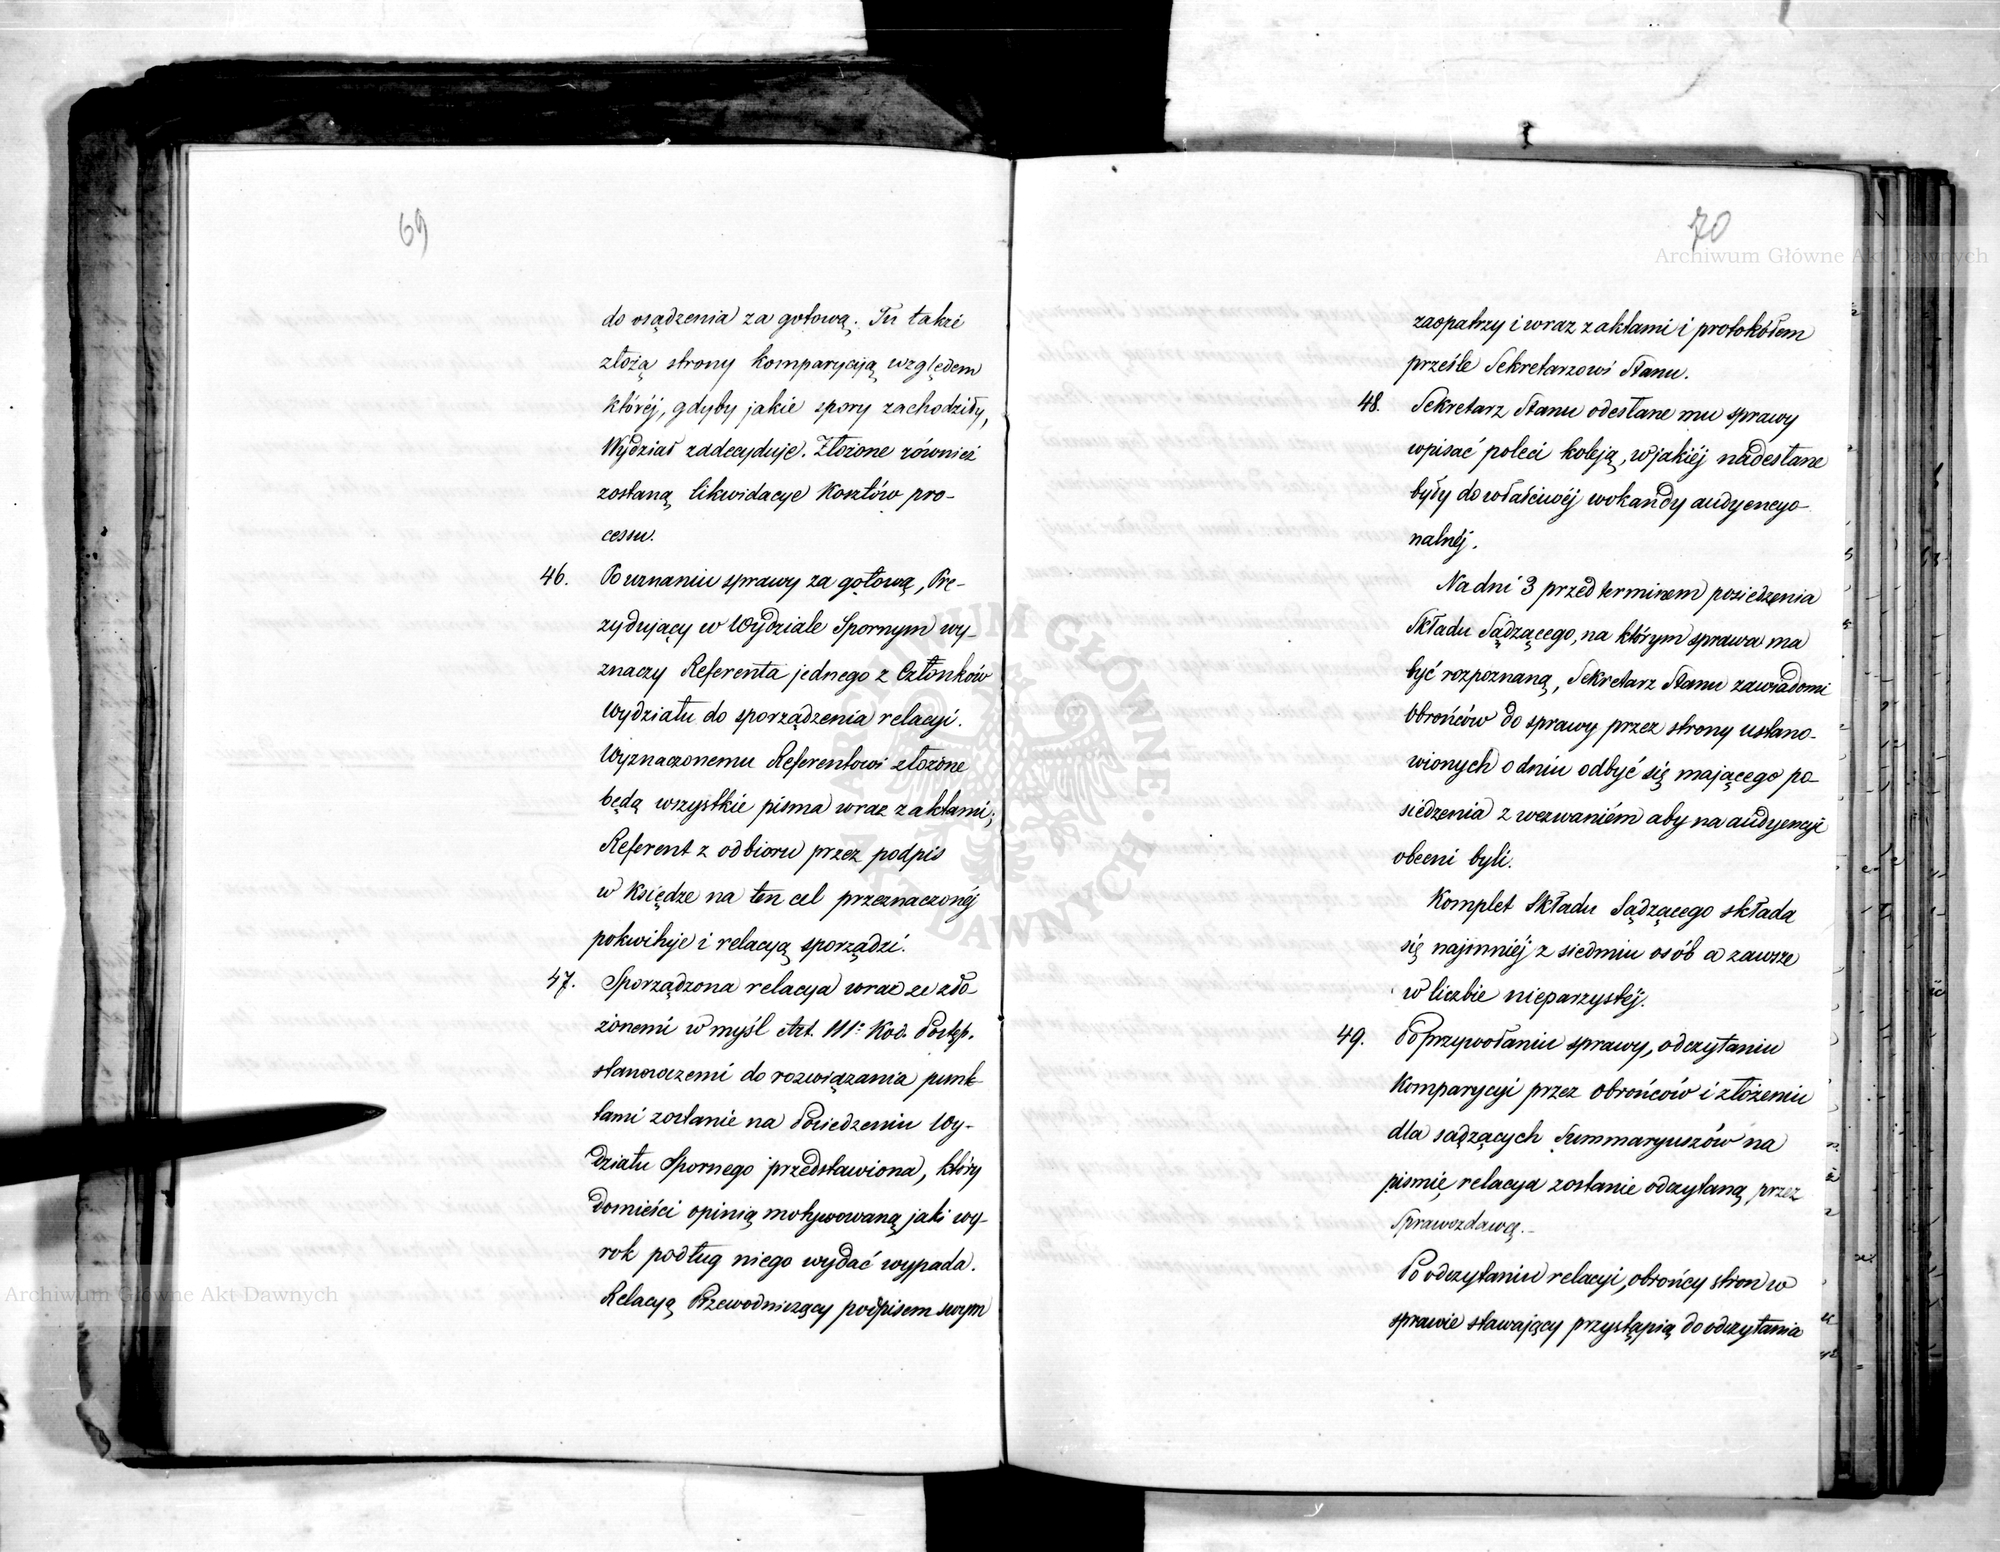 69
do osądzenia za gotową. Tu także
złożą strony komparycyją względem
któréj, gdyby jakie spory zachodziły,
Wydział zadecyduje. Złożone również
zostaną likwidacye Kosztów pro-
cessu.
46. Po uznaniu sprawy za gotową, Pre-
zydujący w Wydziale Spornym wy-
znaczy Referenta jednego z Członków
Wydziału do sporządzenia relacyi.
Wyznaczonemu Referentowi złożone
będą wszystkie pisma wraz z aktami;
Referent z odbioru przez podpis
w Księdze na ten cel przeznaczonéj
pokwituje i relacyą sporządzi.
47. Sporządzona relacya wraz ze zło-
żonemi w myśl Art. 111º Kod. Postęp.
stanowczemi do rozwiązania punk-
tami zostanie na Posiedzeniu Wy-
działu Spornego przedstawiona, który
domieści opinią motywowaną jaki wy-
rok podług niego wydać wypada.
Relacyą Przewodniczący podpisem swym
70
zaopatrzy i wraz z aktami i protokółem
prześle Sekretarzowi Stanu.
48. Sekretarz Stanu odesłane mu sprawy
wpisać poleci koleją, w jakiéj nadesłane
były do właściwéj wokandy audyencyo-
nalnéj.
Na dni 3 przed terminem posiedzenia
Składu Sądzącego, na którym sprawa ma
być rozpoznaną, Sekretarz Stanu zawiadomi
Obrońców do sprawy przez strony ustano-
wionych o dniu odbyć się mającego po-
siedzenia z wezwaniem aby na audyencyi
obecni byli.
Komplet Składu Sądzącego składa
się najmniéj z siedmiu osób a zawsze
w liczbie nieparzystéj.
49. Po przywołaniu sprawy, odczytaniu
Komparycyi przez obrońców i złożeniu
dla sądzących Summaryuszów na
piśmie, relacya zostanie odczytaną przez
Sprawozdawcę.-
Po odczytaniu relacyi, obrońcy stron w
sprawie stawający przystąpią do odczytania
Archiwum Główne Akt Dawnych
Archiwum Główne Akt Dawnych
ARCHIWUM GŁÓWNE AKT DAWNYCH